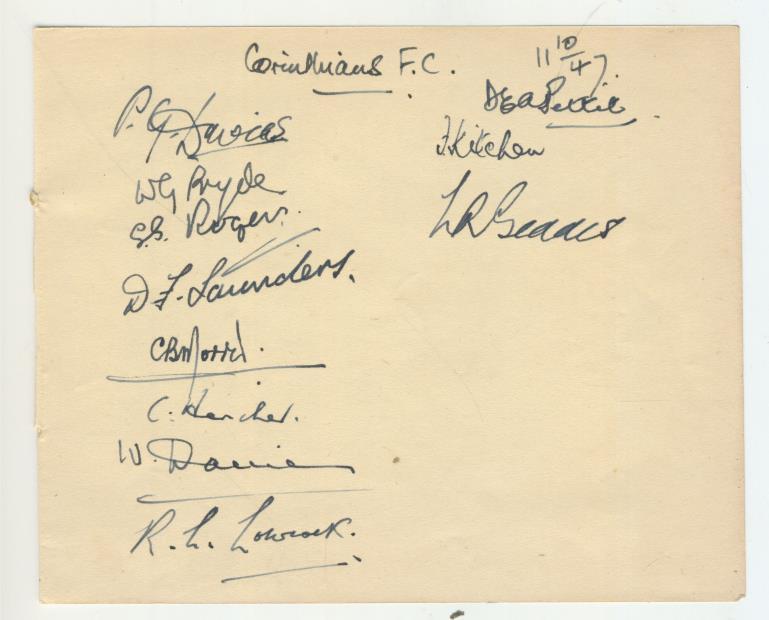 Corinthians F.C.
11 10/47
P. G. Davies
W G Pryde
G.S. Rogers.
D F. Saunders.
C B Morris.
C.
W. Davies
R. L. Lowcock.
D G A
F. Kitchen
L R Geddes